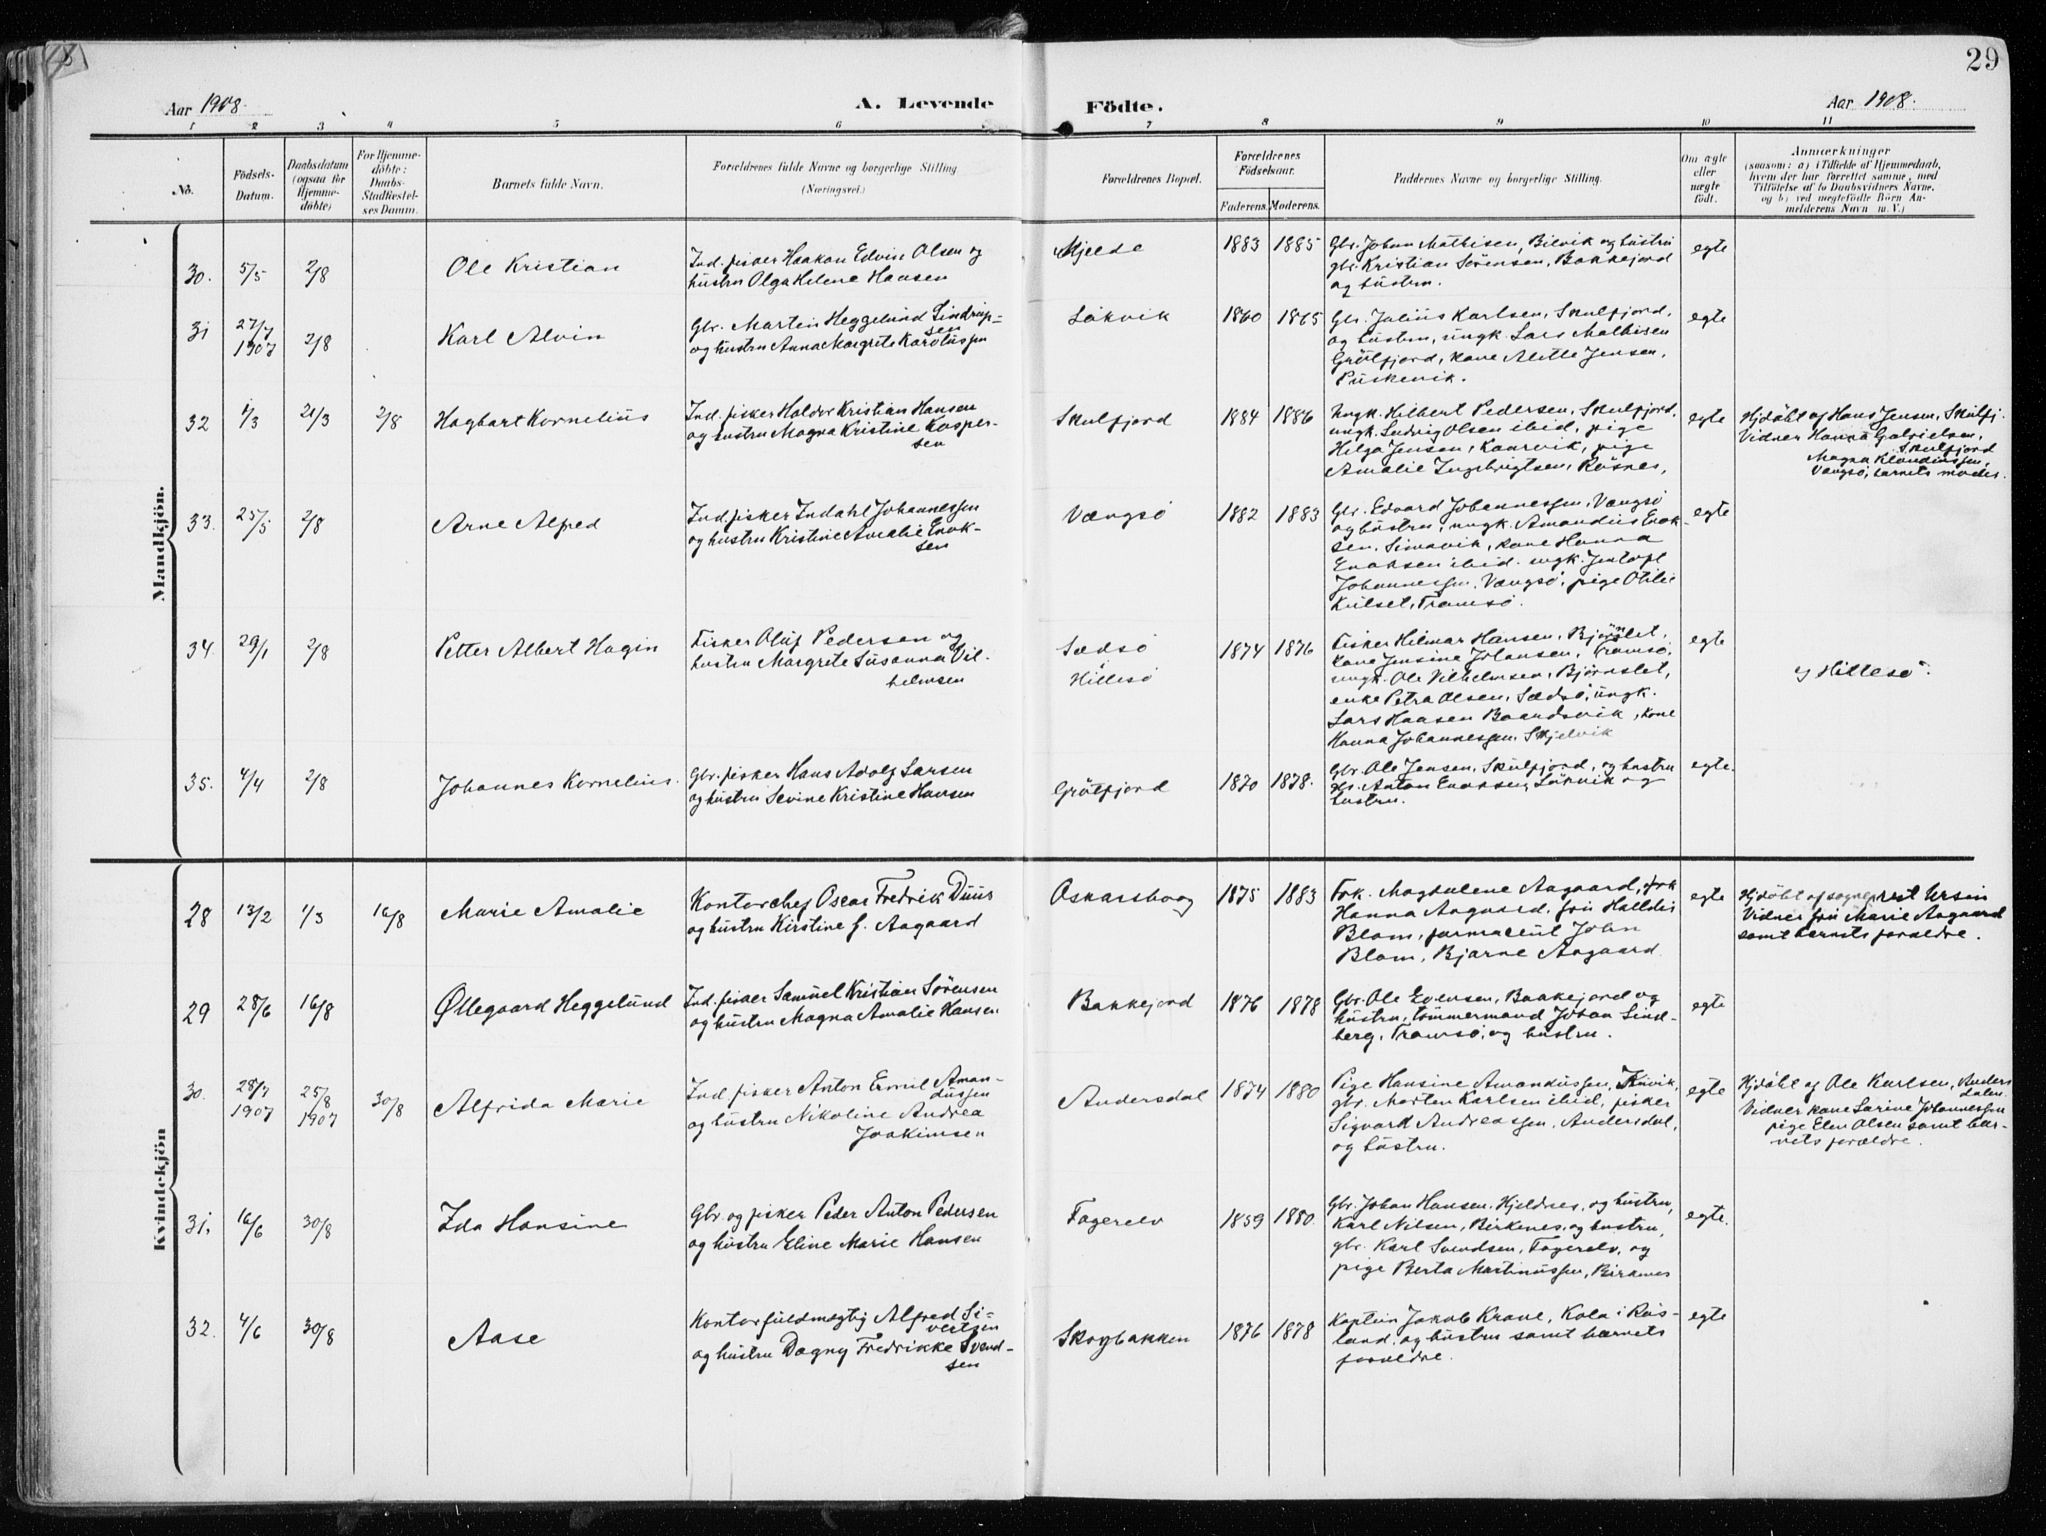 29
Aar 1908.
A. Levende
Födte.
Aar 1908.
1 2 3 4 5 6 7 8 9 10 11
No.
Födsels-
Datum.
Daabsdatum
(ogsaa for
Hjemme-
döbte)
For Hjemme-
döbte:
Daabs-
Stadfæstel-
ses Datum.
Barnets fulde Navn.
Forældrenes fulde Navne og borgerlige Stilling
(Næringsvei.)
Forældrenes Bopæl.
Forældrenes
Födselsaar.
Faderens. Moderens.
Faddernes Navne og borgerlige Stilling.
Om ægte
eller
uægte
födt.
Anmærkninger
(saasom: a) i Tilfælde af Hjemmedaab,
hvem der har forrettet samme, med
Tilföielse af to Daabsvidners Navne,
og b) ved uægtefödte Börn An-
melderens Navn m. V.)
Mandkjön.
30. 5/5 2/8 Ole Kristian
Ind. fisker Haakon Edvin Olsen og
hustru Olga Helene Hansen
Mjelde 1883 1885
Gbr. Johan Mathisen, Bilvik og hustru
gbr. Kristian Sørensen, Bakkejord
og hustru.
egte
31 27/7 1907 2/8 Karl Alvin
Gbr. Martin Heggelund Lindrup-
sen
og hustru Anna Margrete Karolussen
Løkvik 1860 1865
Gbr. Julius Karlsen, Skulfjord,
og hustru, ungk. Lars Mathisen
Grötfjord, kone Alette Jensen,
Buskevik.
egte
32 1/3 21/3 2/8 Hagbart Kornelius
Ind. fisker Haldor Kristian Hansen
og hustru Magna Kristine Kasper-
sen
Skulfjord 1884 1886
Ungk. Hilbert Pedersen, Skulfjord,
ungk. Ludvig Olsen ibid, pige
Helga Jensen, Kaarvik, pige
Amalie Ingebrigtsen, Røsnes,
egte
Hjdøbt af Hans Jensen, Skulfj.
Vidner Hanna Gabrielsen,
Skulfjord
Magna Klaudiussen,
Vængsø, barnets moder.
33. 25/5 2/8 Arne Alfred
Ind. fisker Indahl Johannessen
og hustru Kristine Amalie Enok-
sen
Vængsø 1882 1883
Gbr. Edvard Johannessen, Vængsø
og hustru, ungk. Amandus Enok-
sen, Simavik, kone Hanna
Enoksen ibid. ungk. Jentoft
Johannessen, Vængsø, pige Otilie
Kvilset, Tromsø.
egte
34. 29/1 2/8 Petter Albert Hagin
Fisker Oluf Pedersen og
hustru Margrete Susanna Vil-
helmsen
Sædsø
Hillesø
1874 1876
Fisker Hilmar Hansen, Bjørnslet,
Kone Jensine Johansen, Tromsø,
ungk. Ole Vilhelmsen, Bjørnslet,
enke Petra Olsen, Sædsø, ungk.
Lars Hansen Baandsvik, Kone
Hanna Johannessen, Skjelvik
egte
Hillesø.
35. 4/4 2/8 Johannes Kornelius.
Gbr. fisker Hans Adolf Larsen
og hustru Sevine Kristine Hansen
Grötfjord 1870 1878.
Gbr. Ole Jensen, Skulfjord, og hustru
gbr. Anton Enoksen, Løkvik og
hustru.
egte.
Kvindekjön
28 13/2 1/3 16/8 Marie Amalie
Kontorchef Oscar Fredrik Duus
og hustru Kirstine G. Aagaard
Oskarsborg 1875 1883
Frk. Magdalene Aagaard, frk
Hanna Aagaard, fru Halldis
Blom, farmaceut John
Blom, Bjarne Aagaard.
egte
Hjdøbt af sogneprest Ursin
Vidner fru Marie Aagaard
samt barnets forældre.
29 28/6 16/8 Øllegaard Heggelund
Ind. fisker Samuel Kristian Sørensen
og hustru Magna Amalie Hansen
Bakkejord 1876 1878
Gbr. Ole Evensen, Bakkejord og
hustru, tømmermand Johan Lind-
berg, Tromsø, og hustru.
egte
30. 28/7 1907 25/8 1907 30/8 Alfrida Marie
Ind. fisker Anton Ermil Aman-
dussen
og hustru Nikoline Andrea
Joakimsen
Andersdal 1874 1880
Pige Hansine Amandussen,
gbr. Morten Karlsen ibid, fisker
Sigvard Andreassen, Andersdal,
og hustru.
egte
Hjdøbt af Ole Karlsen, Anders
dalen.
Vidner kone Sarine Johannessen
pige Elen Olsen samt bar-
nets forældre.
31. 16/6 30/8 Ida Hansine
Gbr. og fisker Peder Anton Pedersen
og hustru Eline Marie Hansen
Fagerelv 1859 1880.
Gbr. Johan Hansen, Hjeldnes, og hustru,
Karl Nilsen, Birkenes, og hustru,
gbr. Karl Svendsen, Fagerelv, og
pige Berta Martinussen, Birkenes
egte.
32. 4/6 30/8 Aase
Kontorfuldmægtig Alfred Si-
vertsen
og hustru Dagny Fredrikke Svend-
sen
Skogbakken 1876 1878
Kaptein Jakob Krane, Kola i Rus-
land, og hustru samt barnets
forældre.
egte